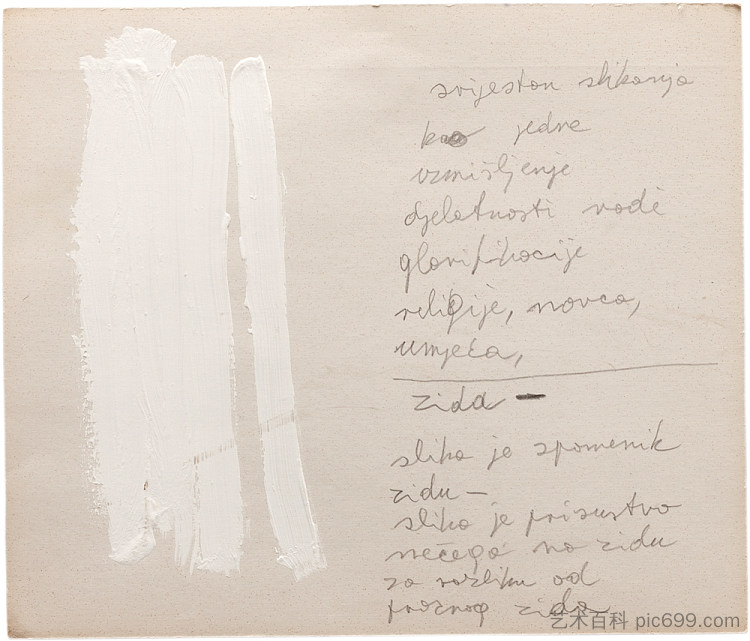 svijeston slikanja
kao jedne
uzmišljenje
djelatnosti vodi
glorifikacije
religije, novca,
umjeća,
zida –
slika je spomenik
zidu –
slika je prisustvo
nečega na zidu
za razliku od
praznog zida
艺术百科 pic699.com